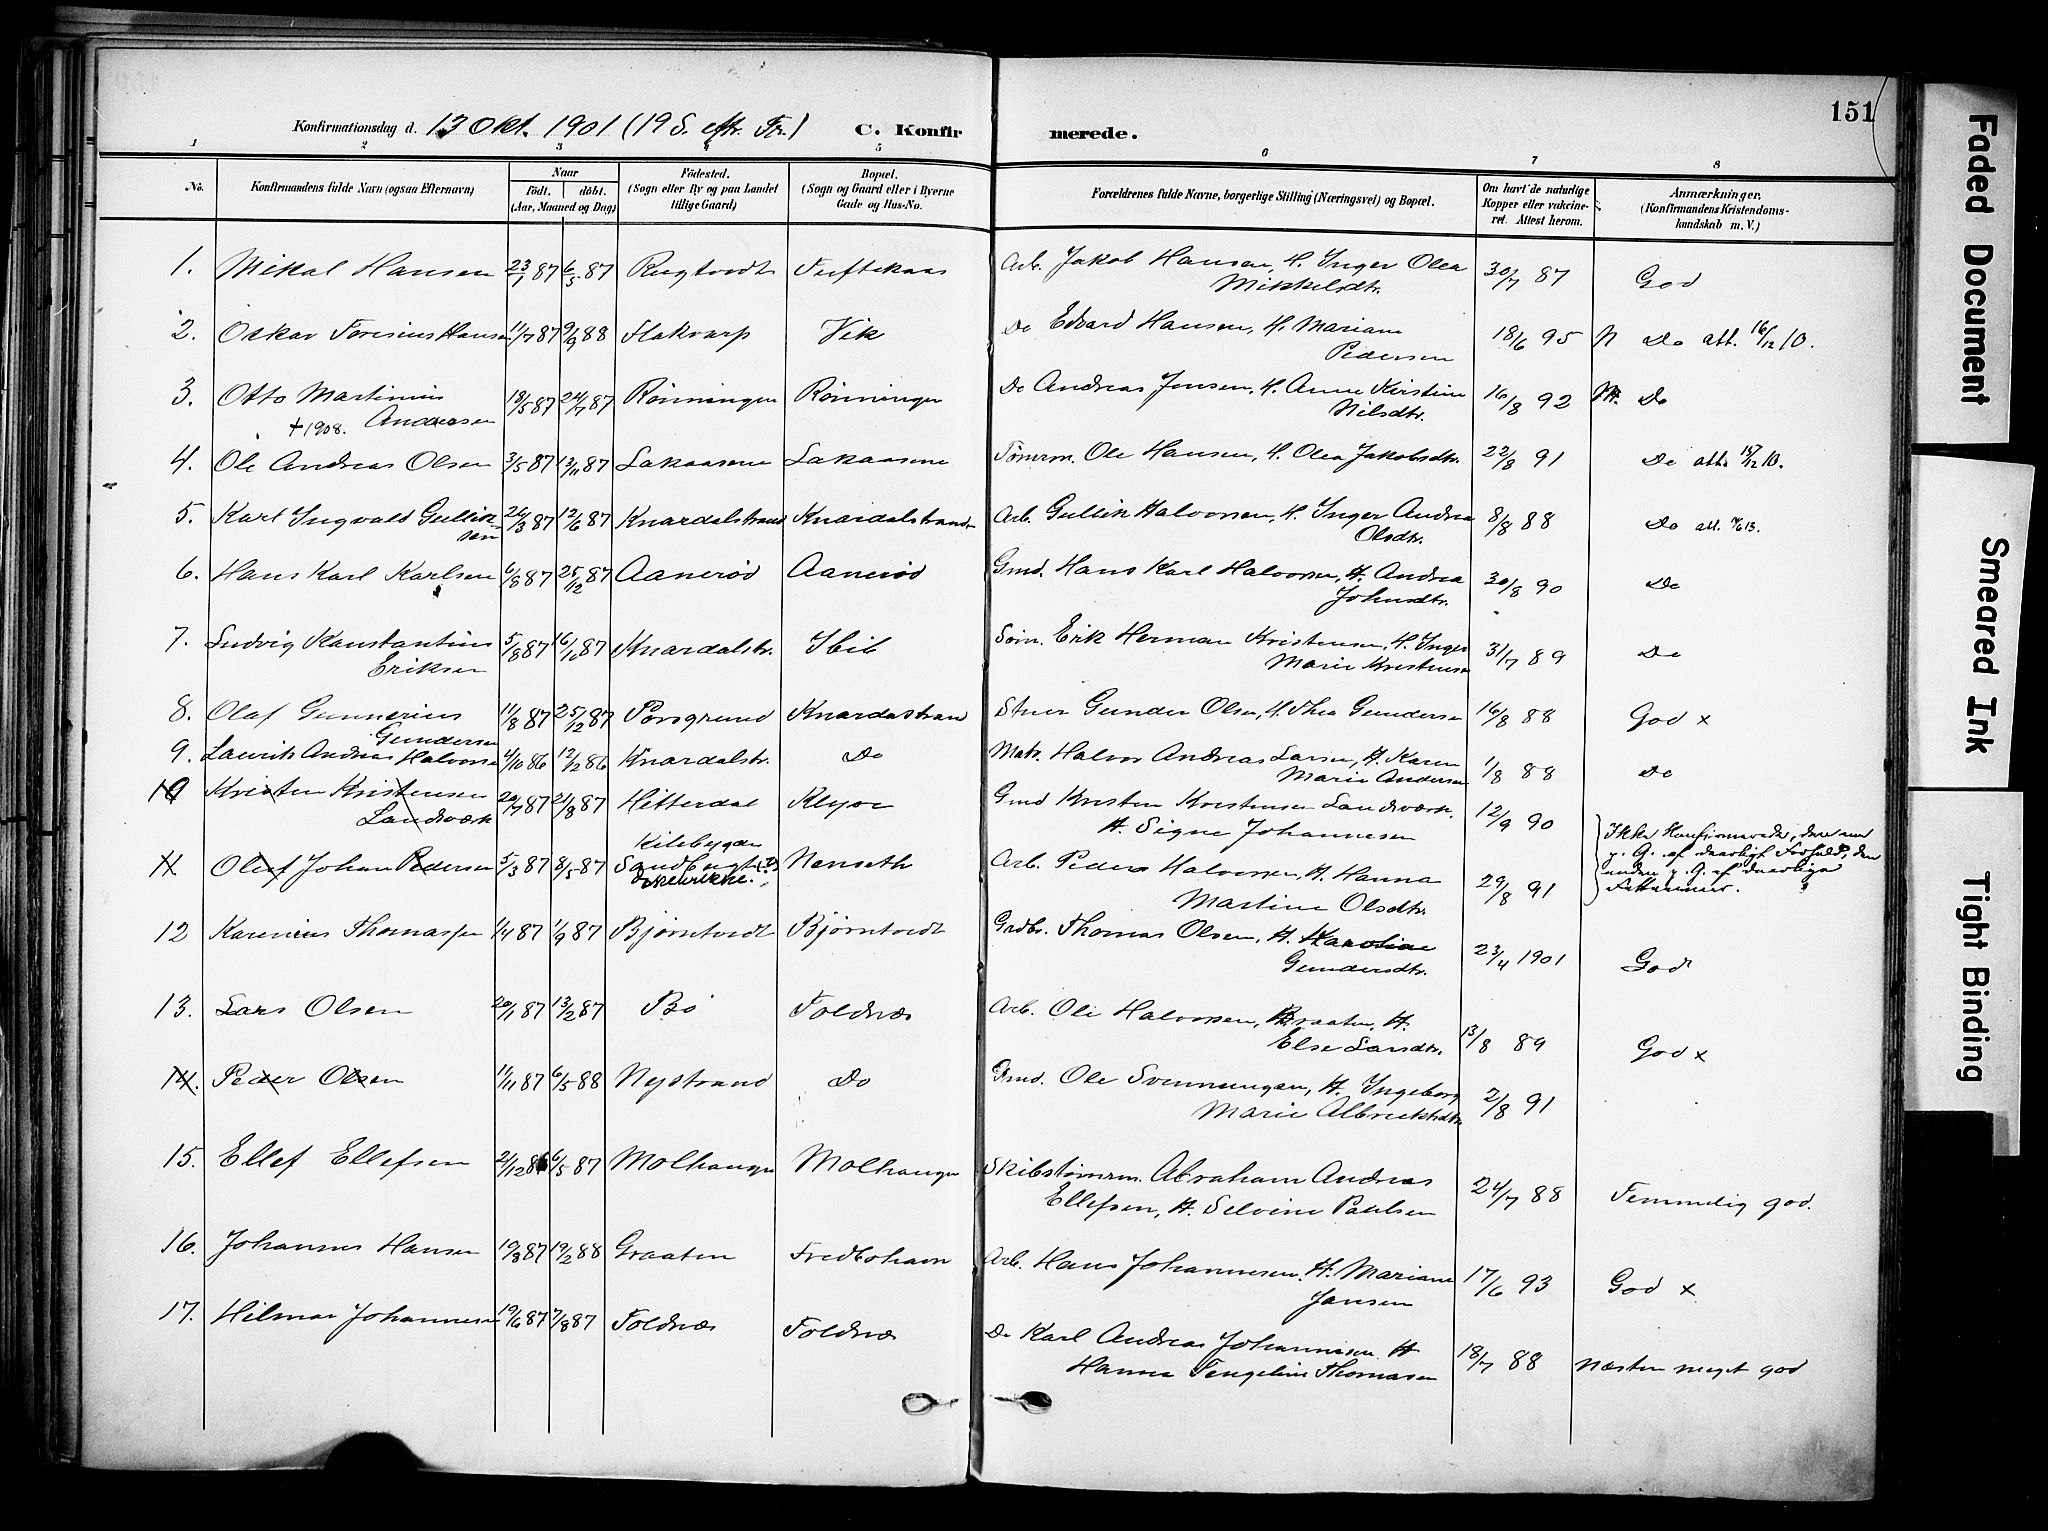 151
Konfirmationsdag d. 13 Okt. 1901 (19 S. eftr. Tr.) C. Konfirmerede.
1 2 3 4 5 6 7 8
No. Konfirmandens fulde Navn (ogsaa Efternavn) Naar Født. døbt. (Aar, Maaned og Dag) Fødested. (Sogn eller By og paa Landet tillige Gaard) Bopæl. (Sogn og Gaard eller i Byerne Gade og Hus-No. Forældrenes fulde Navne, borgerlige Stilling (Næringsvei) og Bopæl. Om havt de naturlige Kopper eller vakcineret. Attest herom. Anmærkninger. (Konfirmandens Kristendomskundskab m. V.)
1. Mikal Hansen 23/1 87 6/5 87 Rugtvedt Tuftekaas Arb. Jakob Hansen, H. Inger Olea 30/7 87 God
Mikkelsdtr.
2. Oskar Toresius Hansen 11/7 87 9/9 88 Flakvarp Vik Do Edvard Hansen, H. Mariane 18/6 95 N Do att. 16/12 10.
Pedersen
3. Otto Martinius 18/5 87 24/7 87 Rønningen Rønningen Do Andreas Jensen, H. Anne Kirstine 16/8 92 Do
+ 1908. Andersen Nilsdtr.
4. Ole Andreas Olsen 3/5 87 13/11 87 Lakaasene Lakaasene Tømrm. Ole Hansen, H. Olea Jakobsdtr. 22/8 91 Do att. 15/12 10.
5. Karl Ingvald Gullik- 26/3 87 12/6 87 Knardalstrand Knardalstrand Arb. Gullik Halvorsen, H. Inger Andrea 8/8 88 Do att.
sen Olsdtr.
6. Hans Karl Karlsen 6/8 87 25/12 87 Aanerød Aanerød Gmd. Hans Karl Halvorsen, H. Andrea 30/8 90 Do
Johnsdtr.
7. Ludvig Konstantius 5/8 87 16/10 87 Knardalstr. Søm. Erik Herman Kristensen, H. Inger 31/7 89 Do
Eriksen Marie Kristensen
8. Olaf Gunnerius 11/8 87 25/12 87 Porsgrund Knardastrand Stuer Gunder Olsen, H. Thea Gundersen 16/8 88 God x
Gundersen
9. Laurits Andreas Halvorsen 4/10 86 12/12 86 Knardalstr. Do Matr. Halvor Andreas Larsen, H. Karen 1/8 88 Do
Marie Andersen
10 Kristen Kristensen 20/7 87 21/8 87 Hitterdal Klyve Gmd Kristen Kristensen Landsværk. 12/9 90
Landsværk H. Signe Johannesen
Ikke Konfirmerede, den ene
p. G. af daarligt Forhold, den
anden p. G. af daarlige
11 Olaf Johan Pedersen 5/3 87 8/5 87 Kilebygden Nenseth Arb. Peder Halvorsen, H. Hanna 29/8 91
Martine Olsdtr.
12 Karenius Thomassen 1/4 87 1/9 87 Bjørntvedt Bjørntvedt Grdbr. Thomas Olsen, H. Karoline 23/4 1901 God
Gundersdtr.
13. Lars Olsen 20/1 87 13/2 87 Bø Foldnæs Arb. Ole Halvorsen, Braaten, H. 13/8 89 God x
Else Larsdtr.
14. Peder Olsen 11/11 87 6/5 88 Nystrand Do Gmd. Ole Svennungsen, H. Ingeborg 2/8 91
Marie Albrektsdtr.
15. Ellef Ellefsen 21/12 86 6/5 87 Molhaugen Molhaugen Skibstømrm. Abraham Andreas 24/7 88 Temmelig god.
Ellefsen, H. Selvine Paulsen
16. Johannes Hansen 10/3 87 19/2 88 Graaten Fredbohavn Arb. Hans Johannesen, H. Mariane 17/6 93 God x
Jansen
17. Hilmar Johannesen 19/6 87 7/8 87 Foldnæs Foldnæs Do Karl Andreas Johannesen H 18/7 88 Næsten meget god
Hanna Thomasen
Faded Document
Smeared Ink
Tight Binding